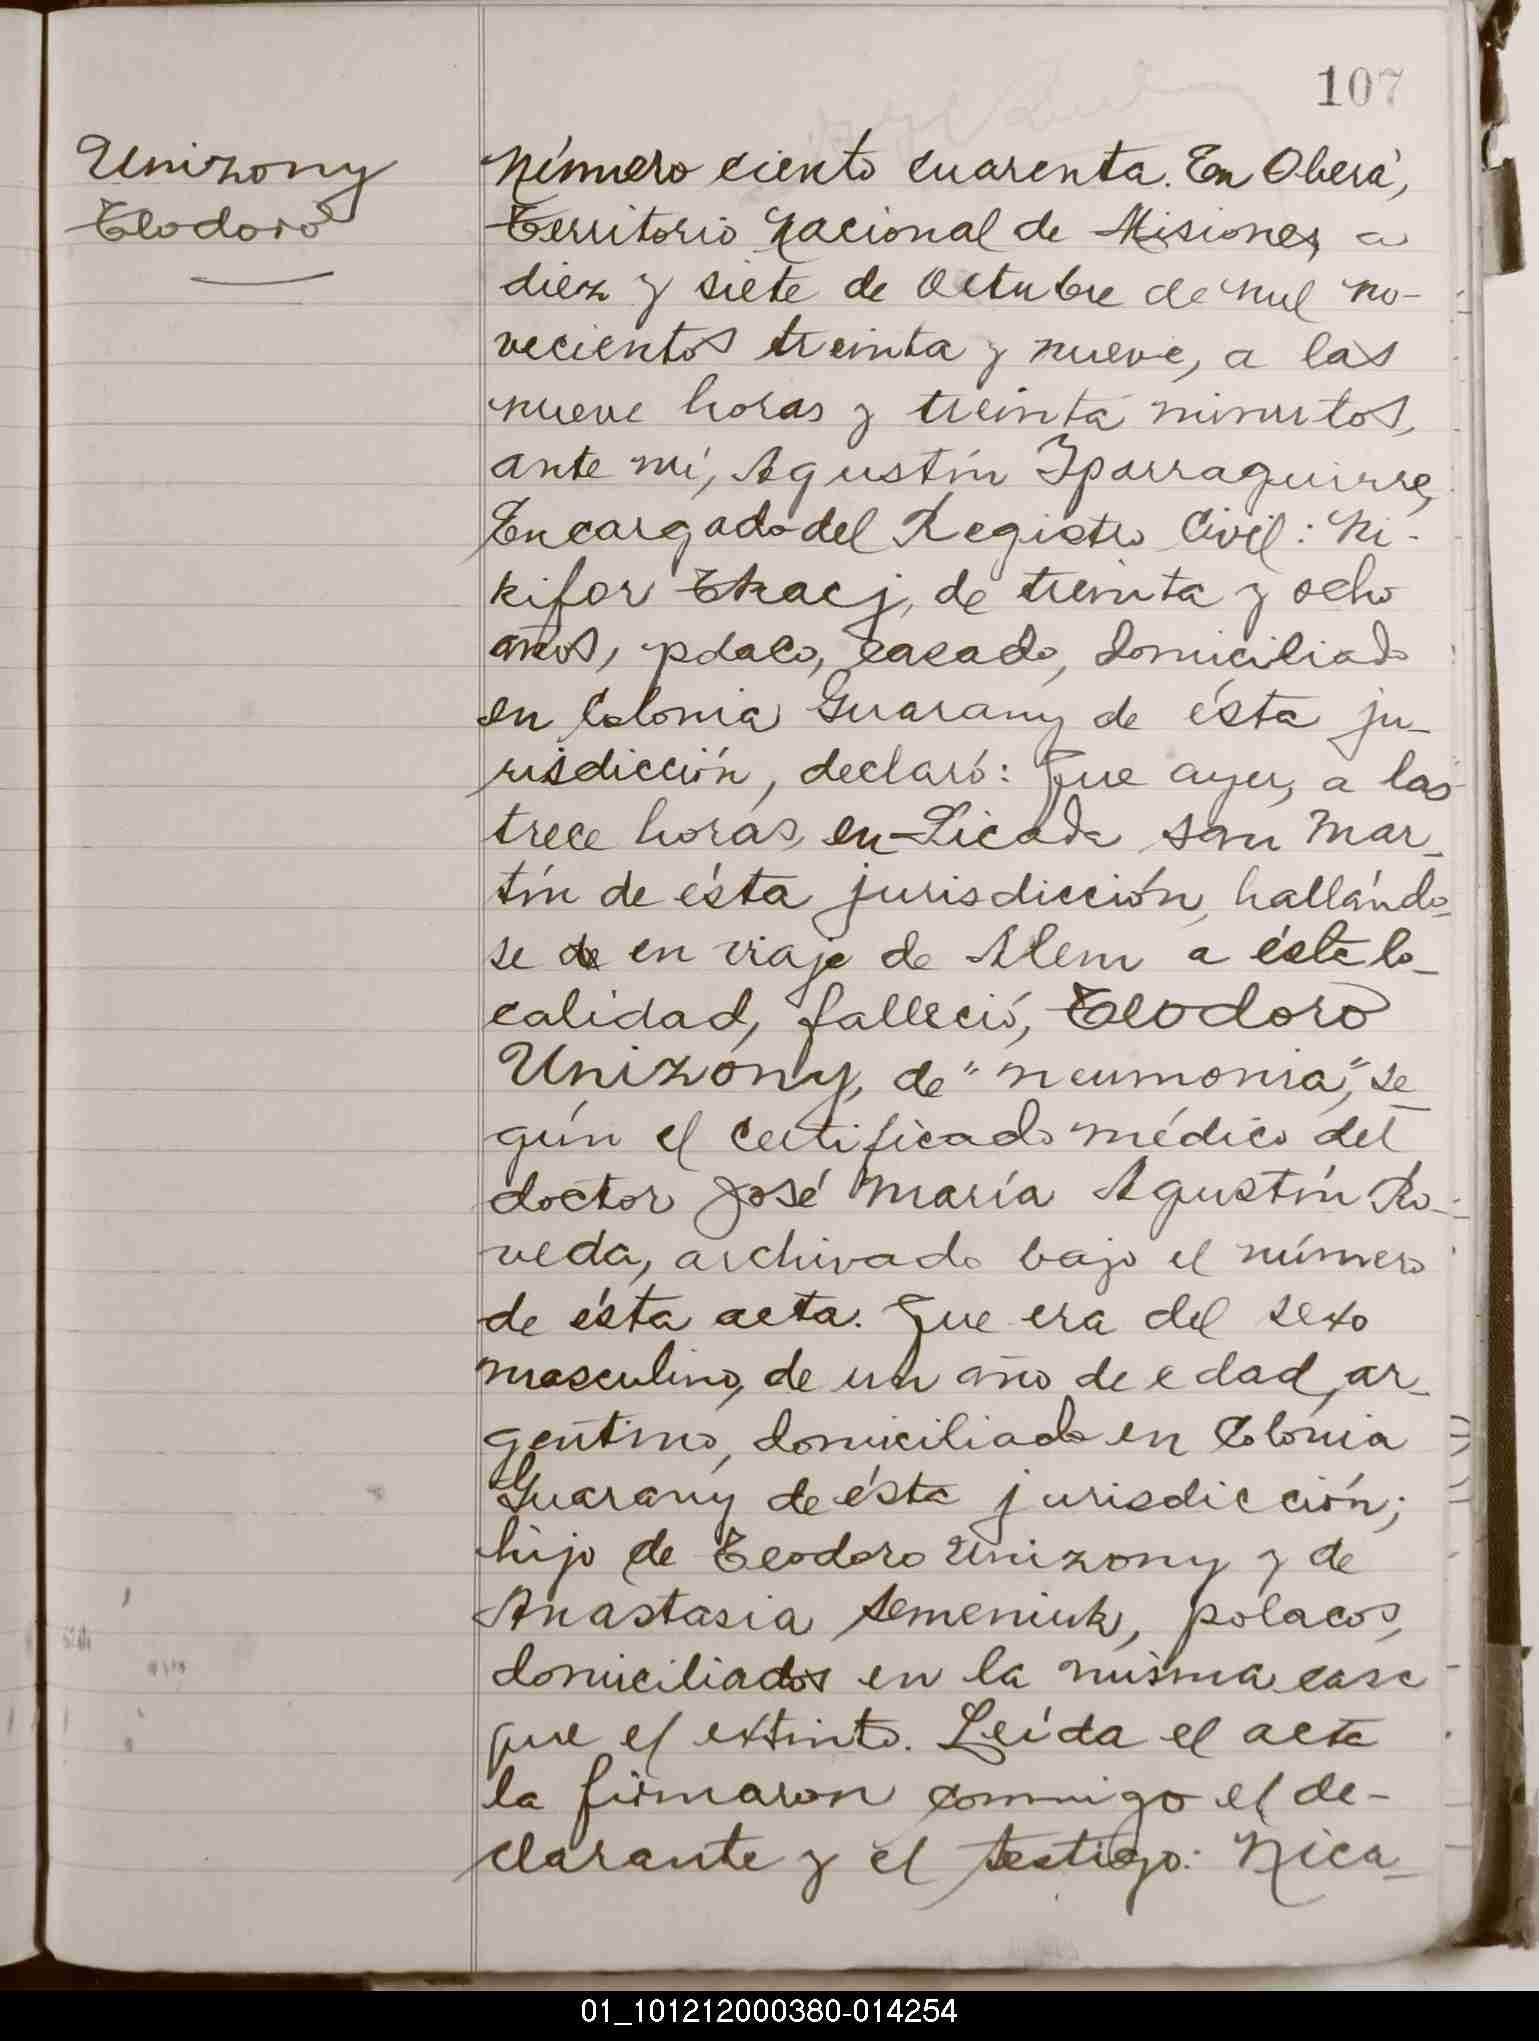 107
Unizony
Teodoro
Número ciento cuarenta. En Oberá,
Territorio Nacional de Misiones, a
diez y siete de Octubre de mil no-
vecientos treinta y nueve, a las
nueve horas y treinta minutos,
ante mí, Agustín Yparraguirre,
Encargado del Registro Civil: Ni-
kifor Tkacj, de treinta y ocho
años, polaco, casado, domiciliado
en Colonia Guarany de ésta ju-
risdicción, declaró: Que ayer, a las
trece horas, en Picada San Mar-
tín de ésta jurisdicción, hallándo-
se de en viaje de Alem a ésta lo-
calidad, falleció, Teodoro
Unizony, de "neumonia", se-
gún el certificado médico del
doctor José María Agustín Ro-
veda, archivado bajo el número
de ésta acta. Que era del sexo
masculino, de un año de edad, ar-
gentino, domiciliado en Colonia
Guarany de ésta jurisdicción;
hijo de Teodoro Unizony y de
Anastasia Semeniuk, polacos,
domiciliados en la misma casa
que el extinto. Leída el acta
la firmaron conmigo el de-
clarante y el testigo: Nica-
01_101212000380-014254